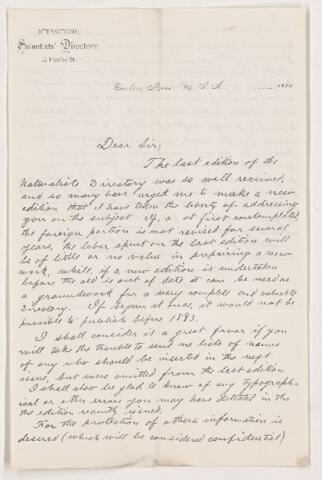 INTERNATIONAL
Scientists' Directory,
Hawley St.
Boston, Mass. U. S. A. 188
Dear Sir;
The last edition of the
Naturalists Directory was so well received,
and so many have urged me to make a new
edition that I have taken the liberty of addressing
you on the subject. If, as at first contemplated,
the foreign portion is not revised for several
years, the labor spent on the last edition will
be of little or no value in preparing a new
work, while, if a new edition is undertaken
before the old is out of date it can be used as
a groundwork for a very complete and valuable
Directory. If begun at once, it would not be
possible to publish before 1883.
I shall consider it a great favor if you
will take the trouble to send me lists of names
of any who should be inserted in the next
issue, but were omitted from the last edition.
I shall also be glad to know of any typograph-
ical or other errors you may have detected in the
the edition recently issued.
For the protection of others information is
desired (which will be considered confidential)